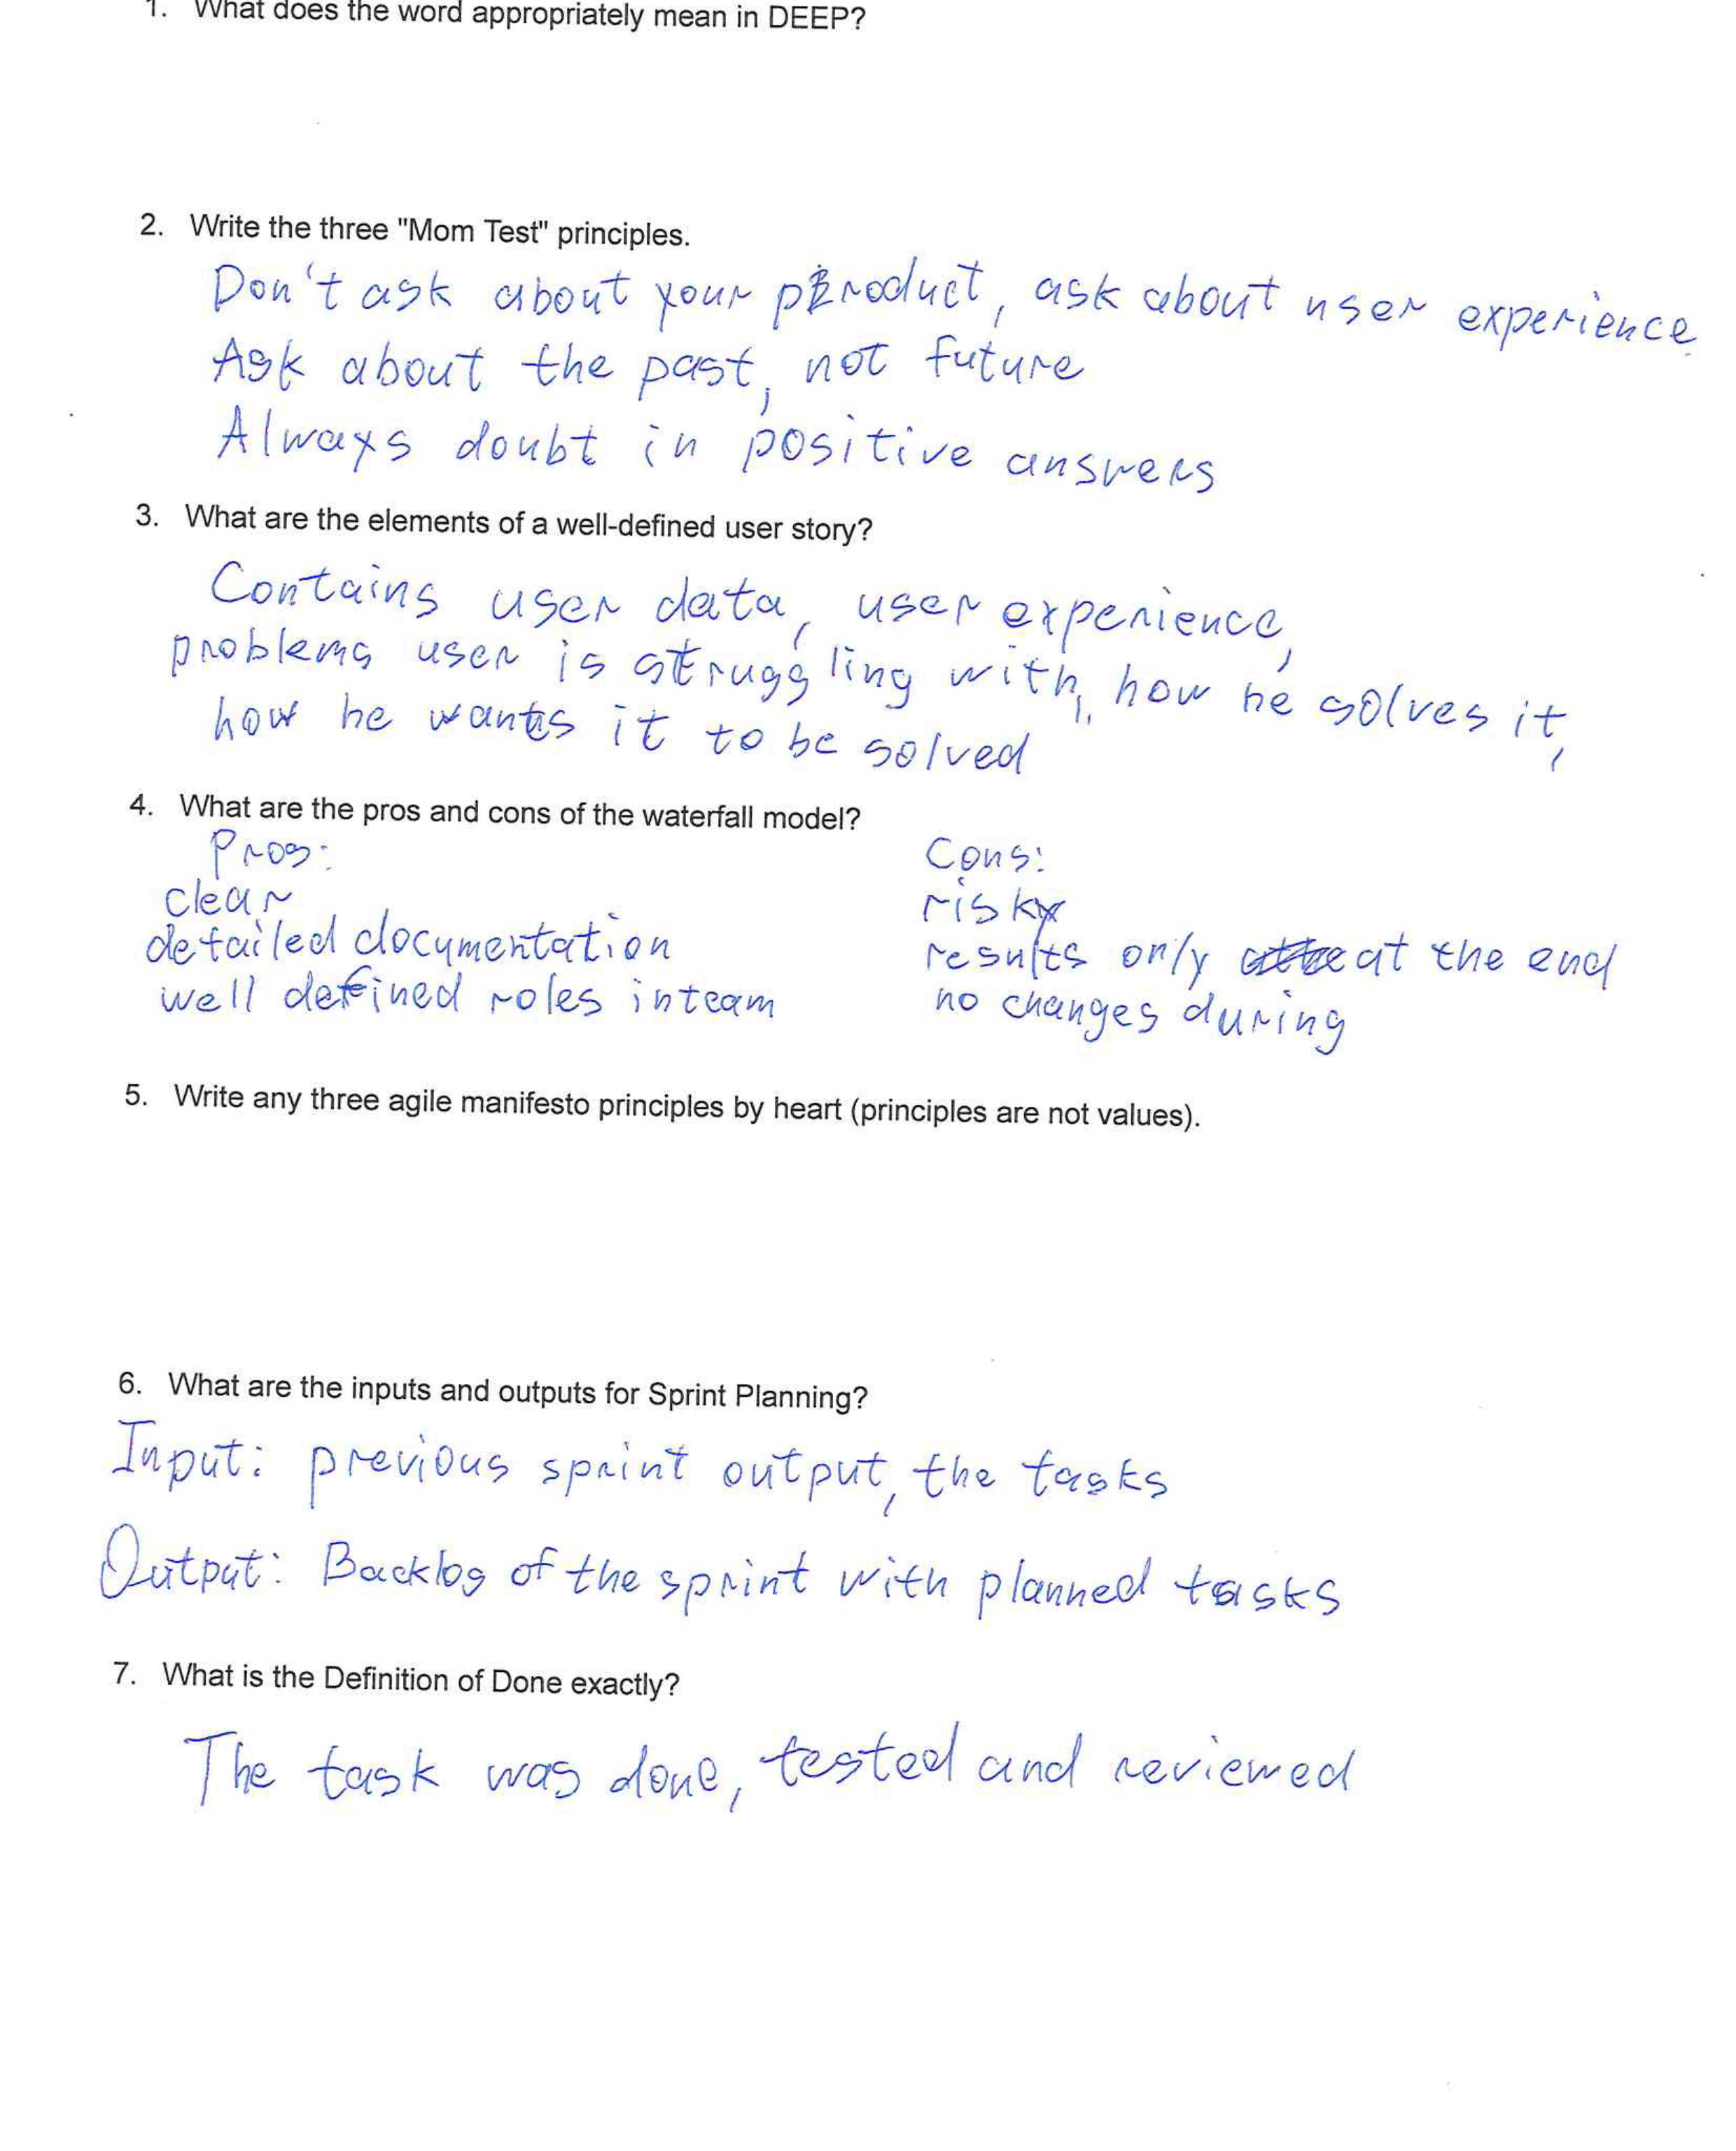 1. What does the word appropriately mean in DEEP?
2. Write the three "Mom Test" principles.
Don't ask about your product, ask about user experience
Ask about the past, not future
Always doubt in positive answers
3. What are the elements of a well-defined user story?
Contains user data, user experience,
problems user is struggling with, how he solves it,
how he wants it to be solved
4. What are the pros and cons of the waterfall model?
Pros: Cons:
clear risky
detailed documentation results only at the end
well defined roles in team no changes during
5. Write any three agile manifesto principles by heart (principles are not values).
6. What are the inputs and outputs for Sprint Planning?
Input: previous sprint output, the tasks
Output: Backlog of the sprint with planned tasks
7. What is the Definition of Done exactly?
The task was done, tested and reviewed